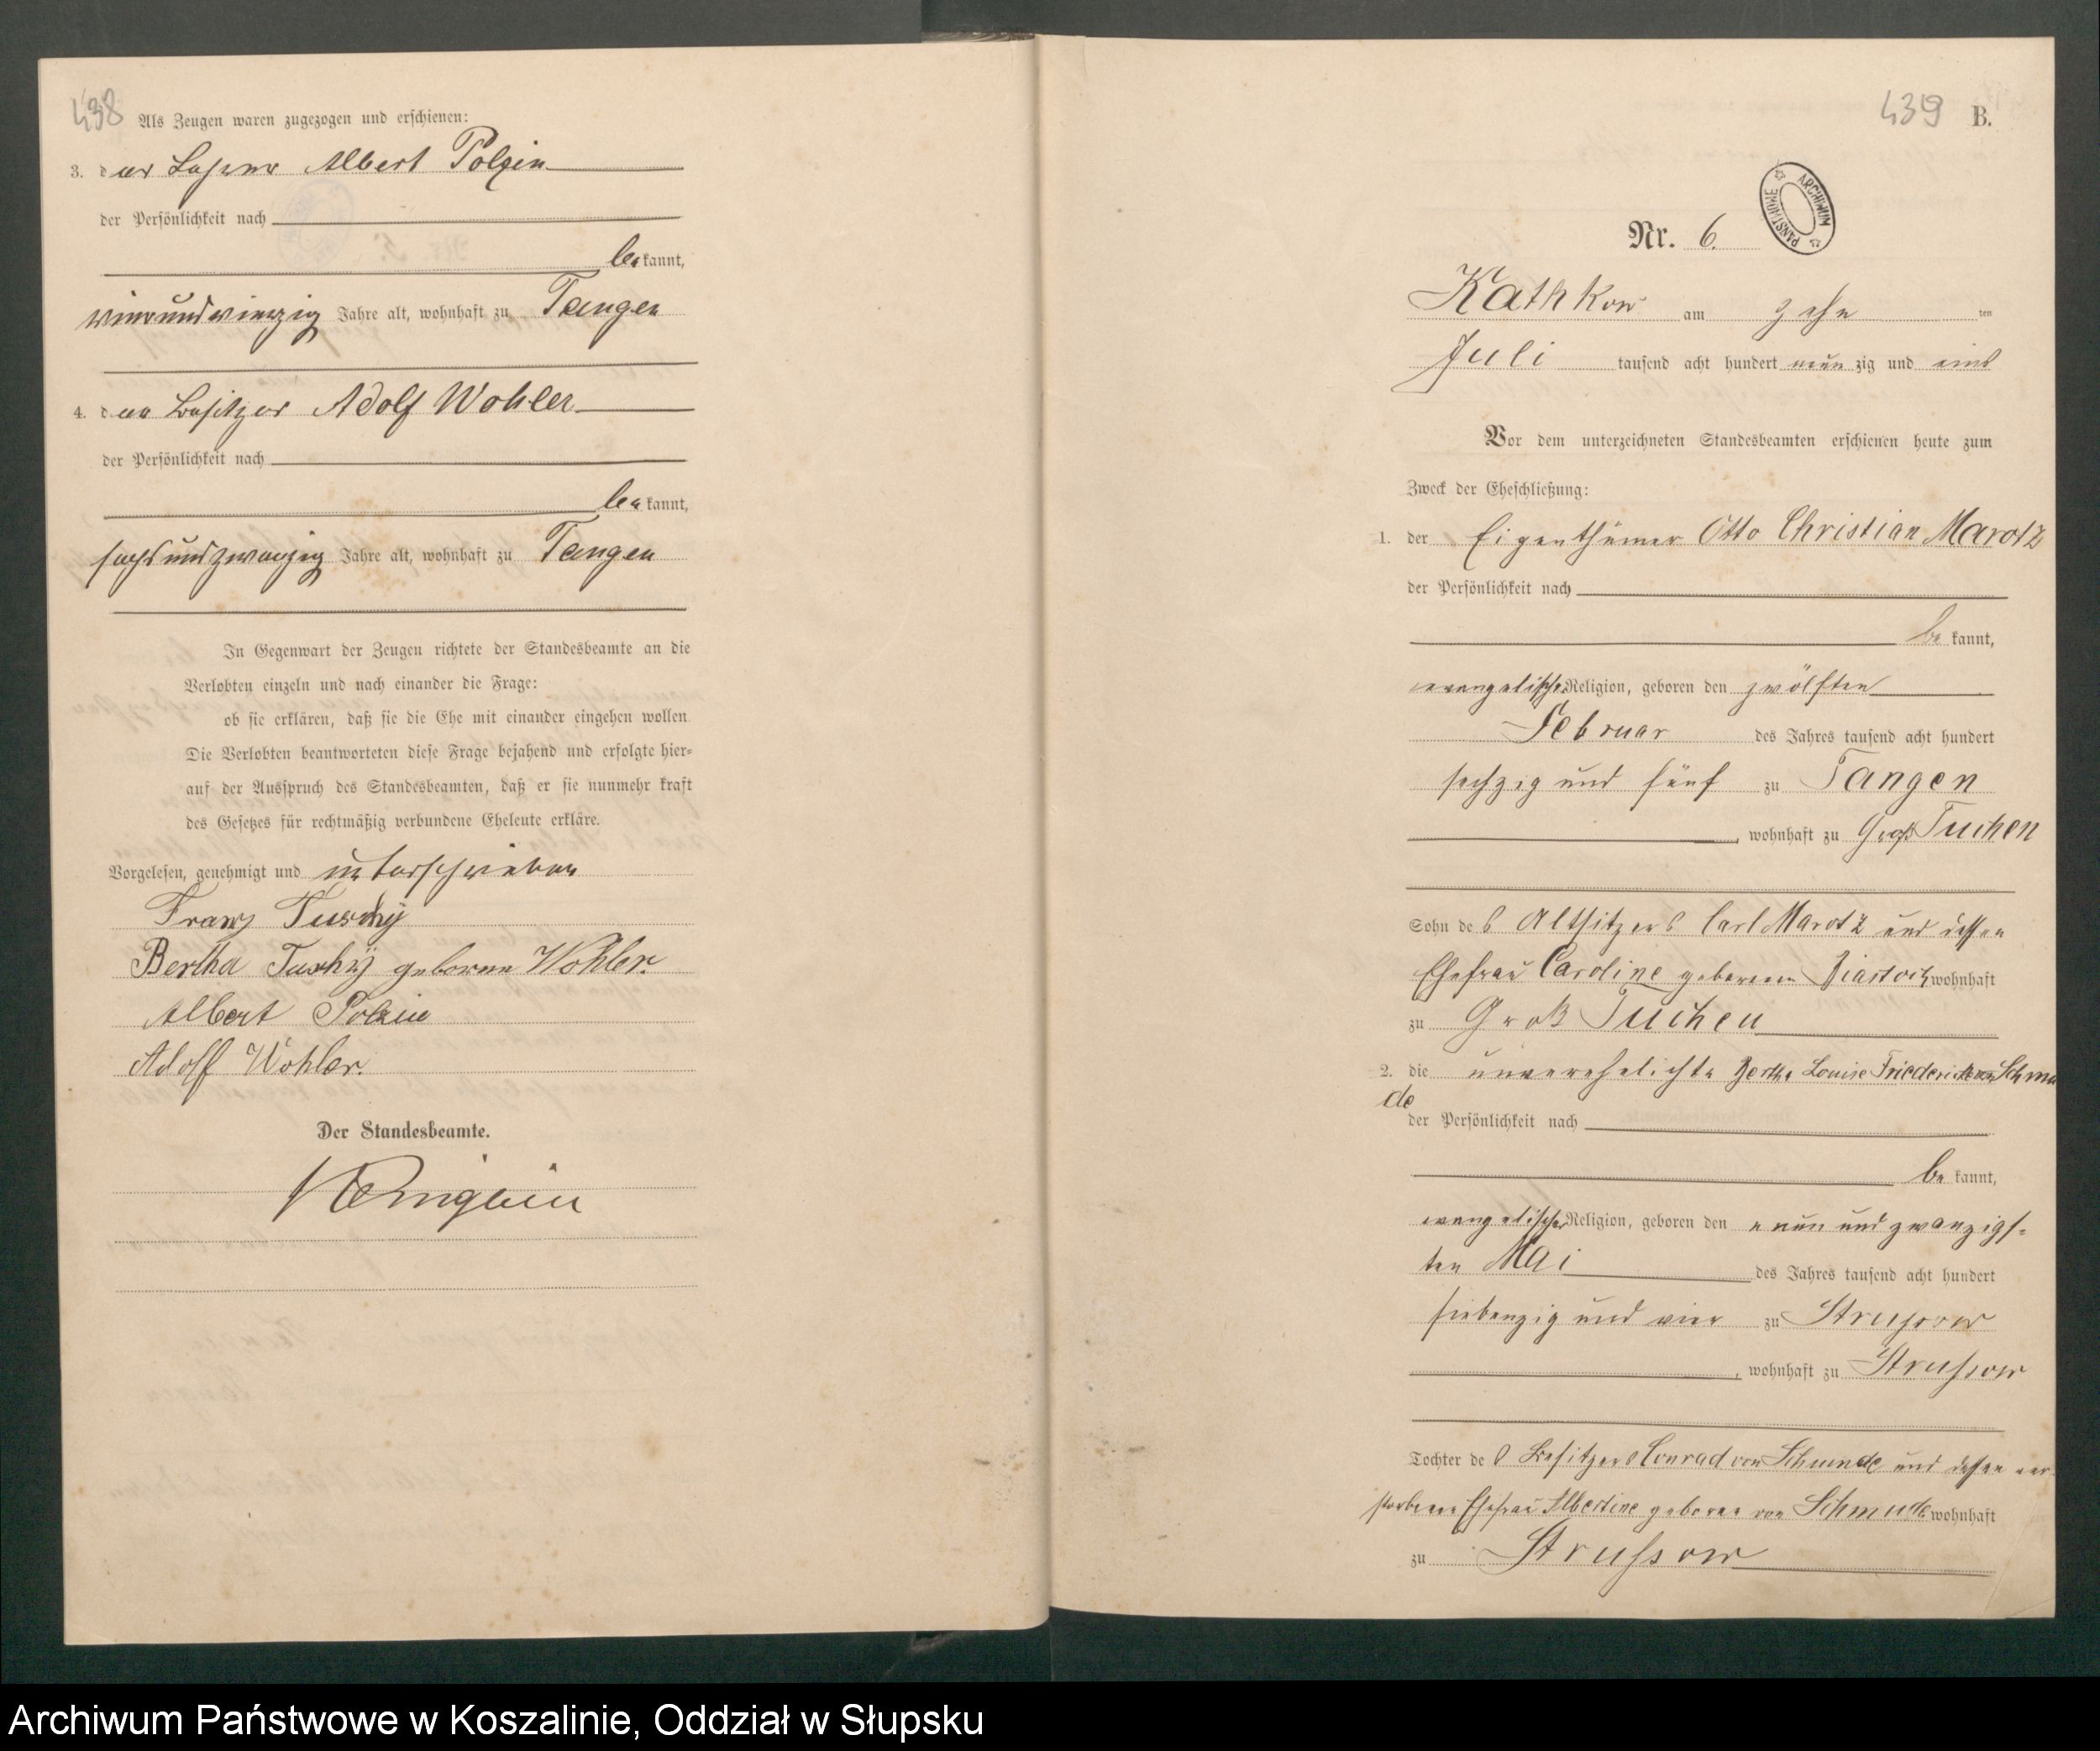 438
Als Zeugen waren zugezogen und erschienen:
3. der Albert Polzin
der Persönlichkeit nach
bekannt,
vierundvierzig Jahre alt, wohnhaft zu Tangen
4. der Besitzer Adolf Wohler
der Persönlichkeit nach
bekannt,
sechsundzwanzig Jahre alt, wohnhaft zu Tangen
In Gegenwart der Zeugen richtete der Standesbeamte an die
Verlobten einzeln und nach einander die Frage:
ob sie erklären, daß sie die Ehe mit einander eingehen wollen
Die Verlobten beantworteten diese Frage bejahend und erfolgte hier-
auf der Ausspruch des Standesbeamten, daß er sie nunmehr kraft
des Gesetzes für rechtmäßig verbundene Eheleute erkläre.
Vorgelesen, genehmigt und unterschrieben
Franz Tuschy
Bertha Tuschy geborene Wohler.
Albert Polzin
Adolf Wohler.
Der Standesbeamte.
439 B.
ARCHIWUM PAŃSTWOWE
Nr. 6.
Kathkow am zehn ten
Juli tausend acht hundert neunzig und eins
Vor dem unterzeichneten Standesbeamten erschienen heute zum
Zweck der Eheschließung:
1. der Eigenthümer Otto Christian Marotz
der Persönlichkeit nach
bekannt,
evangelischer Religion, geboren den zwölften
Februar des Jahres tausend acht hundert
sechzig und fünf zu Tangen
, wohnhaft zu Groß Tuchen
Sohn des Altsitzers Carl Marotz und dessen
Ehefrau Caroline geborenen wohnhaft
zu Groß Tuchen
2. die unverehelichte Bertha Louise Friederike von Schmu
de
der Persönlichkeit nach
bekannt,
evangelischer Religion, geboren den neun und zwanzigs-
ten Mai des Jahres tausend acht hundert
siebenzig und vier zu Strussow
, wohnhaft zu Strussow
Tochter des Besitzers Conrad von Schmude und dessen ver-
storbene Ehefrau Albertine geborene von Schmude wohnhaft
zu Strussow
Archiwum Państwowe w Koszalinie, Oddział w Słupsku